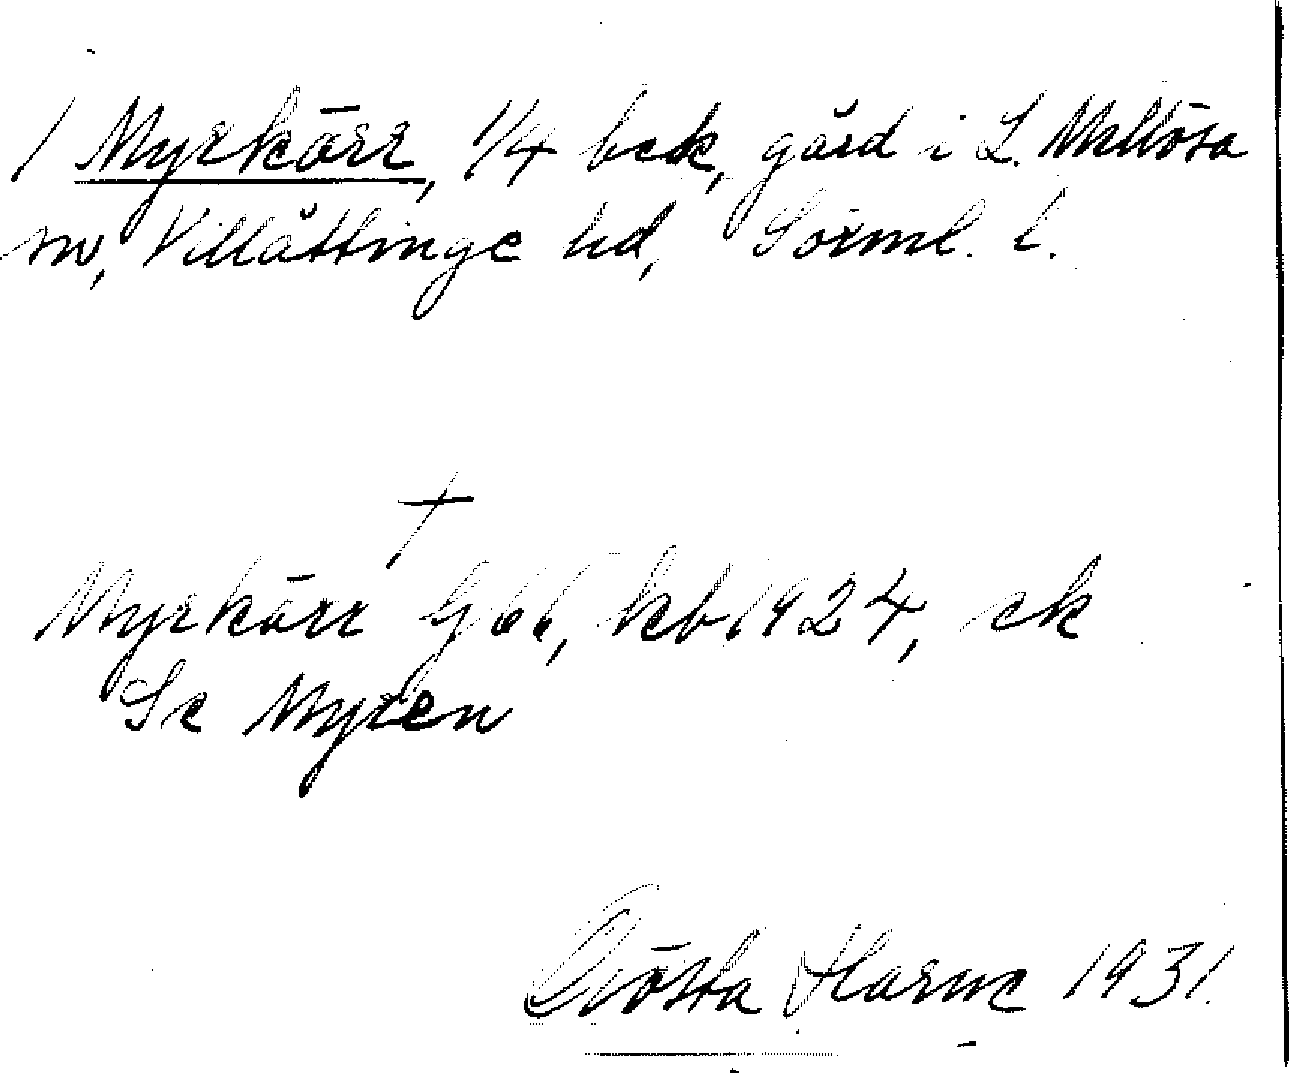 1 Myrkärr, 1/4 bck, gård i L. Mellösa
sn, Villåttinge hd, Sörml. l.
+
Myrkärr G 66, kb 1924, ek
Se Myren
Gösta 1931.